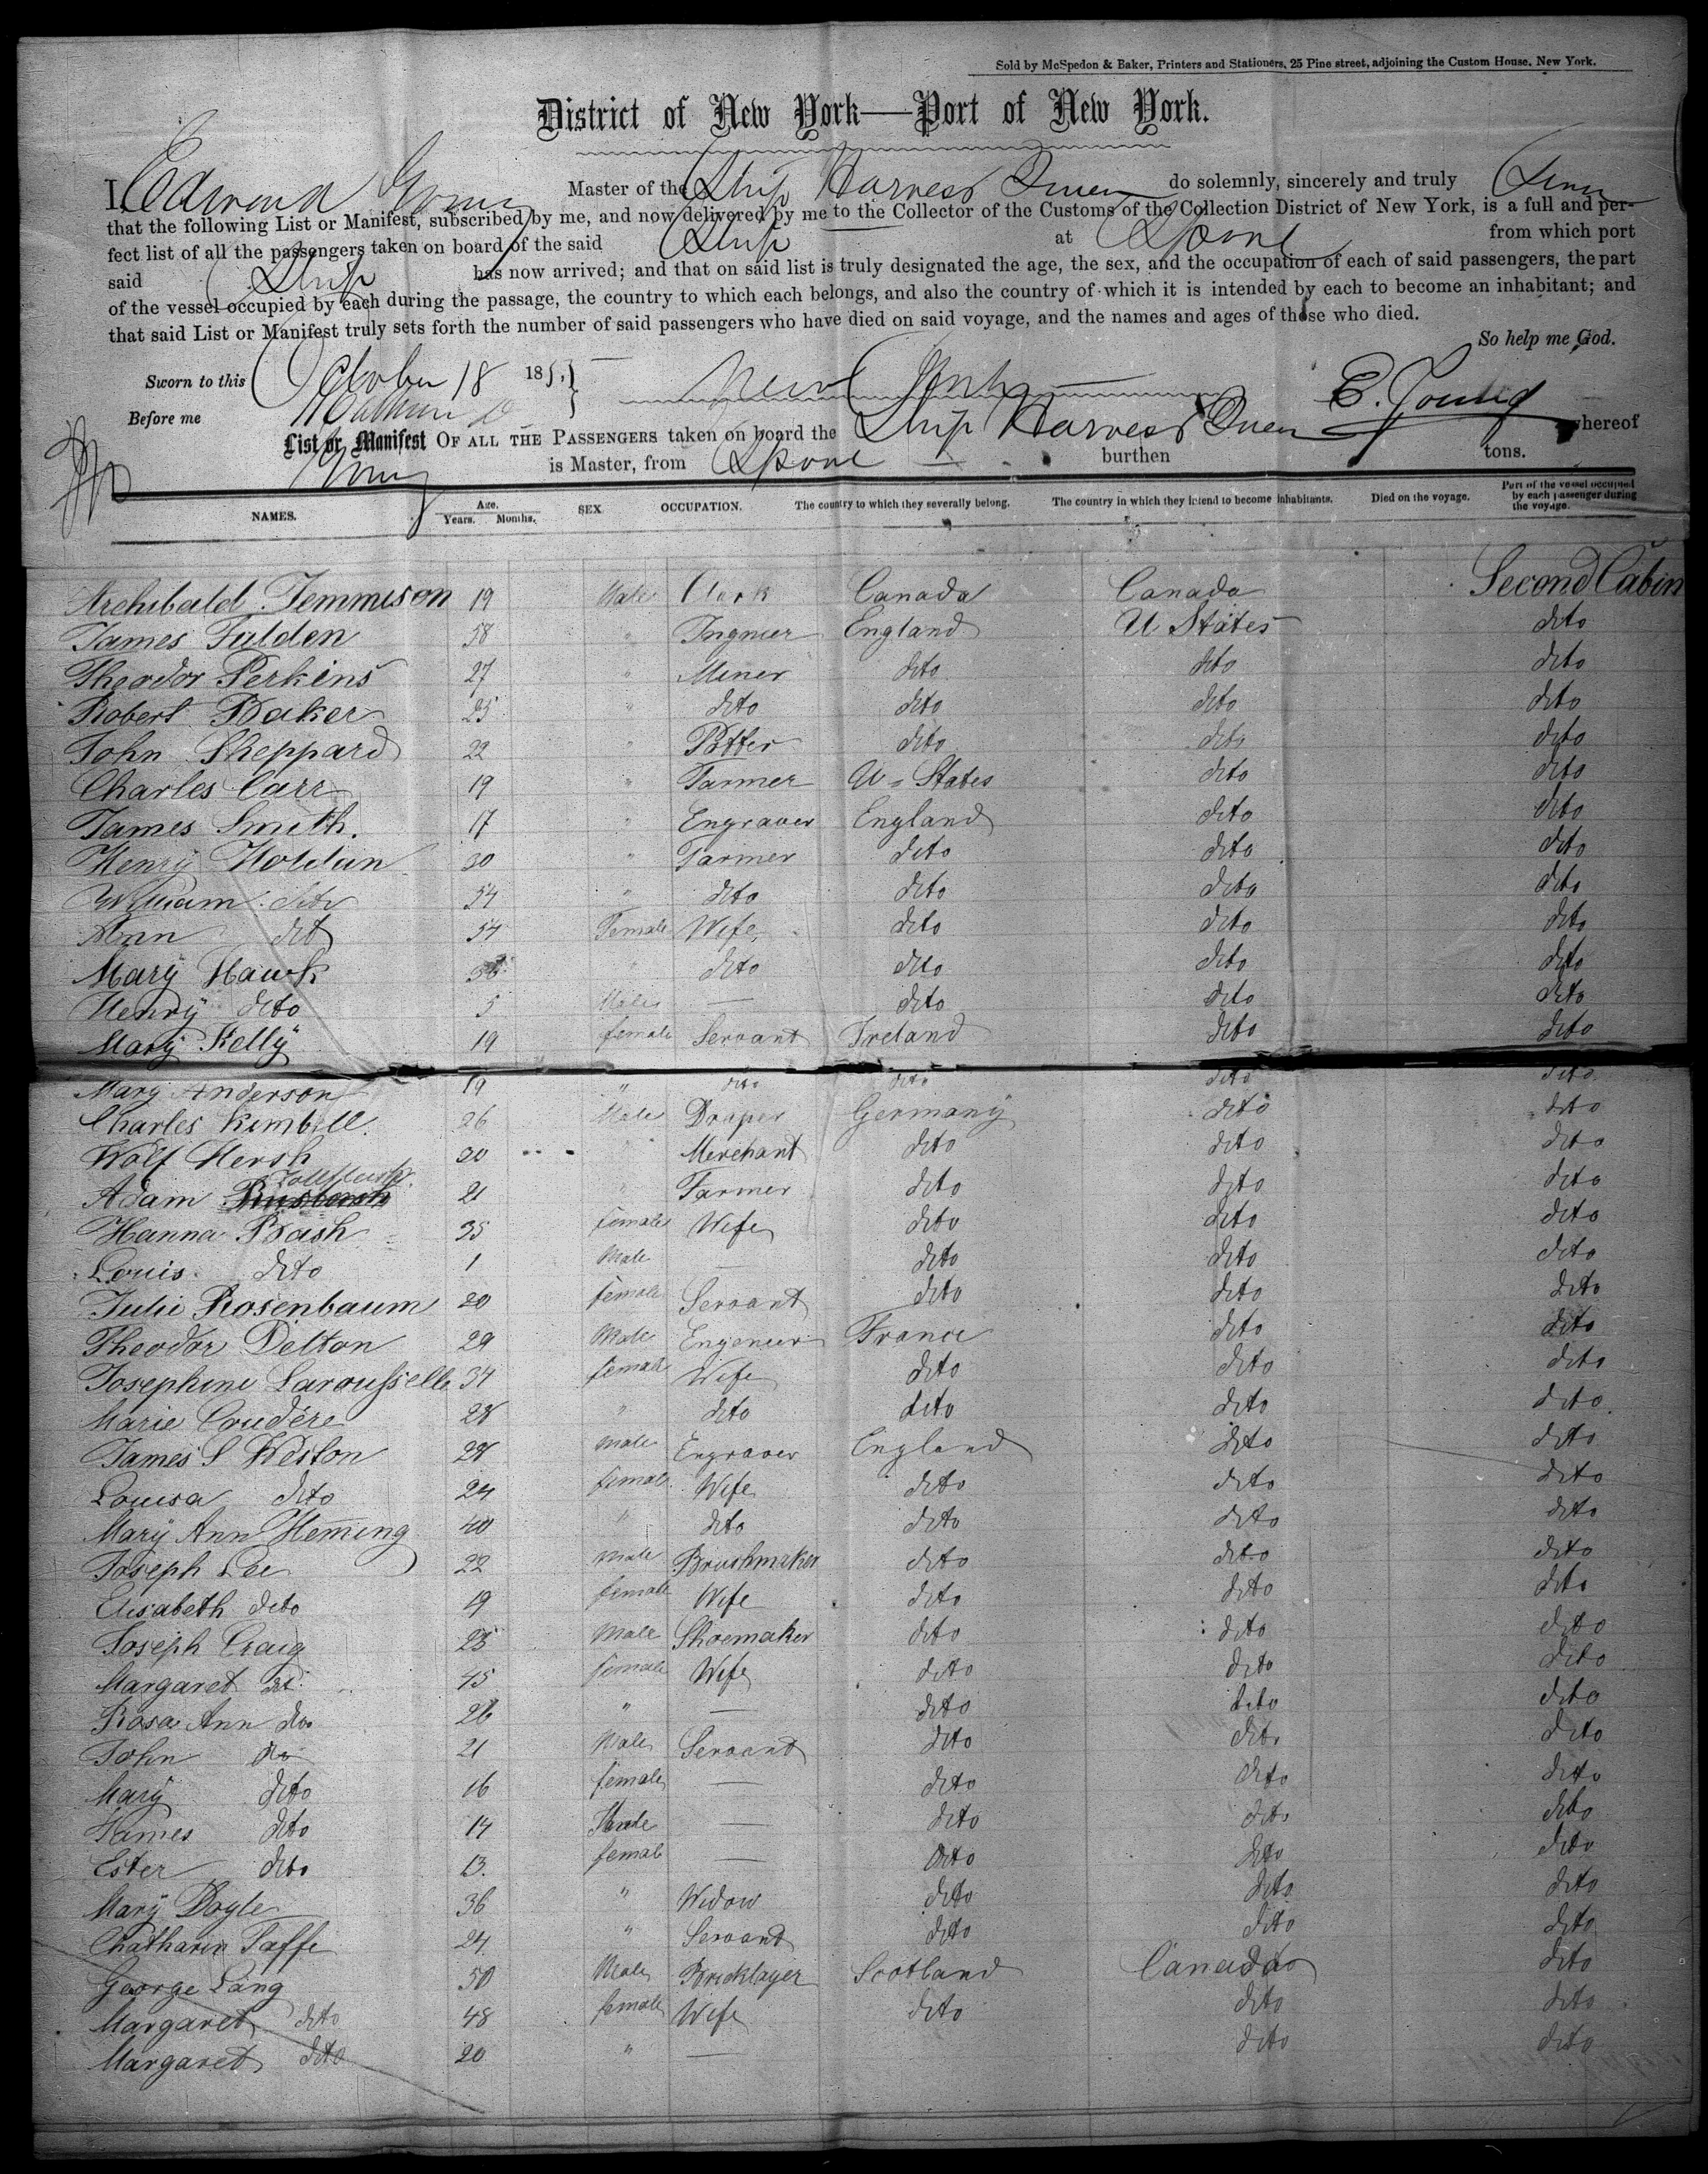 Sold by McSpedon & Baker, Printers and Stationers, 25 Pine street, adjoining the Custom House, New York.
District of New York—Port of New York.
I, Edward Young Master of the Ship Harvest Queen do solemnly, sincerely and truly
that the following List or Manifest, subscribed by me, and now delivered by me to the Collector of the Customs of the Collection District of New York, is a full and per-
fect list of all the passengers taken on board of the said Ship at Lpool from which port
said Ship has now arrived; and that on said list is truly designated the age, the sex, and the occupation of each of said passengers, the part
of the vessel occupied by each during the passage, the country to which each belongs, and also the country of which it is intended by each to become an inhabitant; and
that said List or Manifest truly sets forth the number of said passengers who have died on said voyage, and the names and ages of those who died.
So help me God.
Sworn to this October 18 185
Before me
E. Young
List or Manifest OF ALL THE PASSENGERS taken on board the Ship Harvest Queen whereof
Young is Master, from Lpool burthen tons.
NAMES. Age. Years. Months. SEX OCCUPATION. The country to which they severally belong. The country in which they intend to become inhabitants. Died on the voyage. Part of the vessel occupied by each passenger during the voyage.
Archibald Jemmison 19 Male Clerk Canada Canada Second Cabin
James Fulden 58 " Ingnier England U States dito
Theodor Perkins 27 " Miner dito dito dito
Robert Baker 25 " dito dito dito dito
John Sheppard 22 " Potter dito dito dito
Charles Carr 19 " Farmer U-States dito dito
James Smith. 17 " Engraver England dito dito
Henry Holdin 30 " Farmer dito dito dito
William dito 54 " dito dito dito dito
Ann dit 54 Female Wife dito dito dito
Mary Hawk " dito dito dito dito
Henry dito 5 Male — dito dito dito
Mary Kelly 19 female Servant Ireland dito dito
Mary Anderson 19 " dito dito dito dito
Charles Kimbell. 26 Male Draper Germany dito dito
Wolf Hersh 30 " Merchant dito dito dito
Adam 21 " Farmer dito dito dito
Hanna Bash 35 female Wife dito dito dito
Louis dito 1 Male — dito dito dito
Julie Rosenbaum 20 female Servant dito dito dito
Theodor Delton 29 Male Engeneer France dito dito
Josephine Larousselle 34 female Wife dito dito dito
Marie Coudére 28 " dito dito dito dito
James S Weston 28 male Engraver England dito dito
Louisa dito 24 female Wife dito dito dito
Mary Ann Heming 40 " dito dito dito dito
Joseph Lee 22 male Brushmaker dito dito dito
Elisabeth dito 19 female Wife dito dito dito
Joseph Craig 25 Male Shoemaker dito dito dito
Margaret dit 45 female Wife dito dito dito
Rosa Ann do 26 " — dito dito dito
John do 21 Male Servant dito dito dito
Mary dito 16 female — dito dito dito
James dito 14 Male — dito dito dito
Ester dito 13. femal — dito dito dito
Mary Doyle 36 " Widow dito dito dito
Chatharin Taffe 24 " Servand dito dito dito
George Lang 50 Male Bricklayer Scotland Canada dito
Margaret dito 48 female Wife dito dito dito
Margaret dito 20 " — dito dito